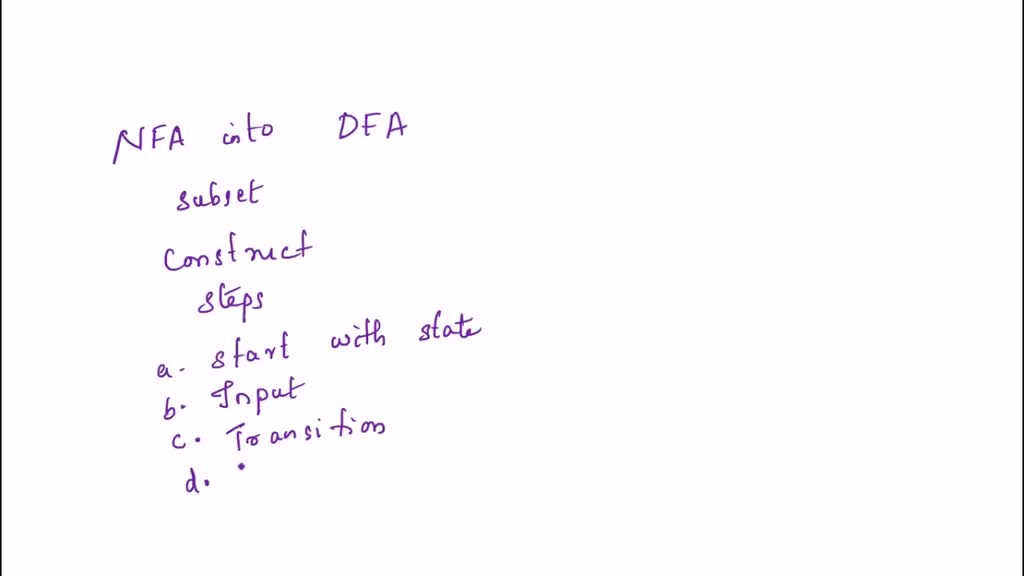 NFA into DFA
subset
Construct
steps
a. start with state
b. Input
c. Transition
d.